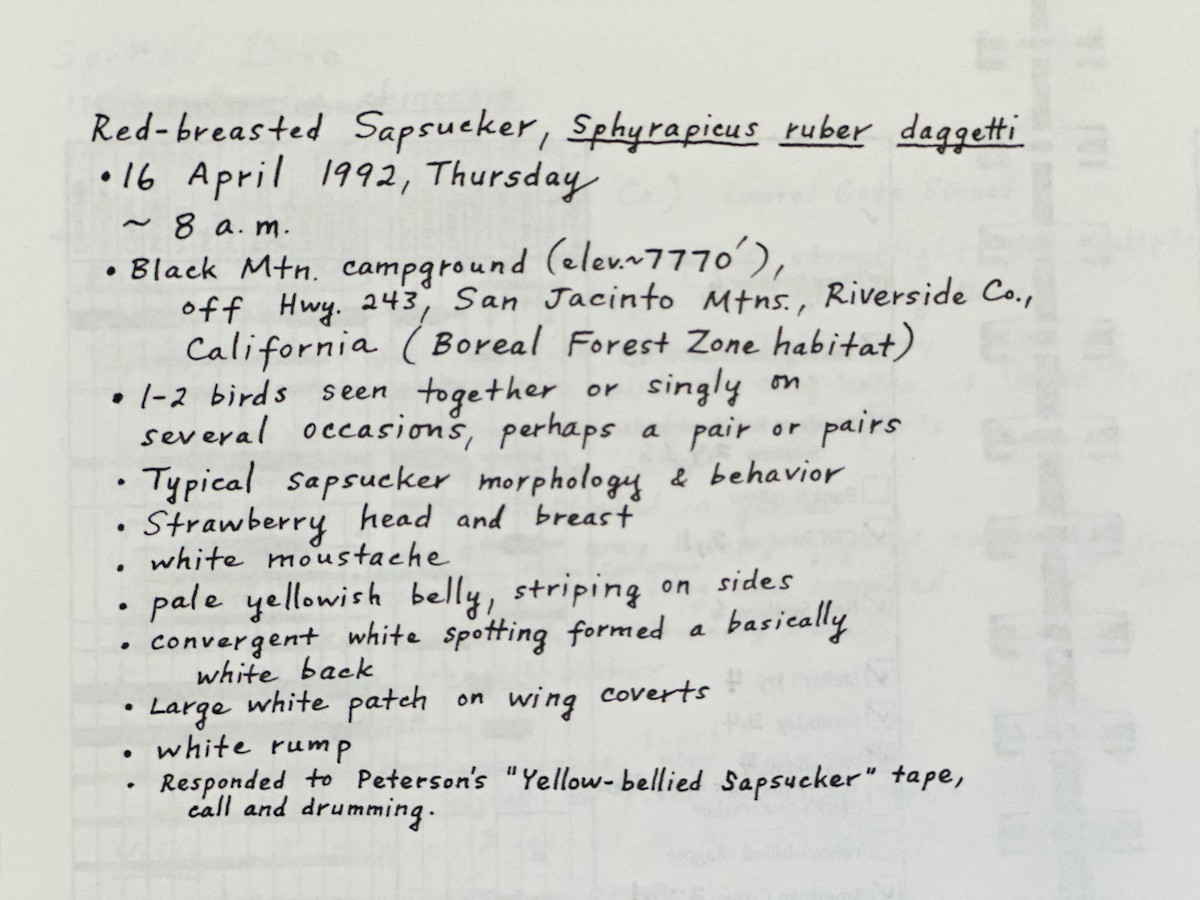 Red-breasted Sapsucker, Sphyrapicus ruber daggetti
• 16 April 1992, Thursday
~ 8 a.m.
• Black Mtn. campground (elev.~7770′),
off Hwy. 243, San Jacinto Mtns., Riverside Co.,
California (Boreal Forest Zone habitat)
• 1-2 birds seen together or singly on
several occasions, perhaps a pair or pairs
• Typical sapsucker morphology & behavior
• Strawberry head and breast
• white moustache
• pale yellowish belly, striping on sides
• convergent white spotting formed a basically
white back
• Large white patch on wing coverts
• white rump
• Responded to Peterson's "Yellow-bellied Sapsucker" tape,
call and drumming.